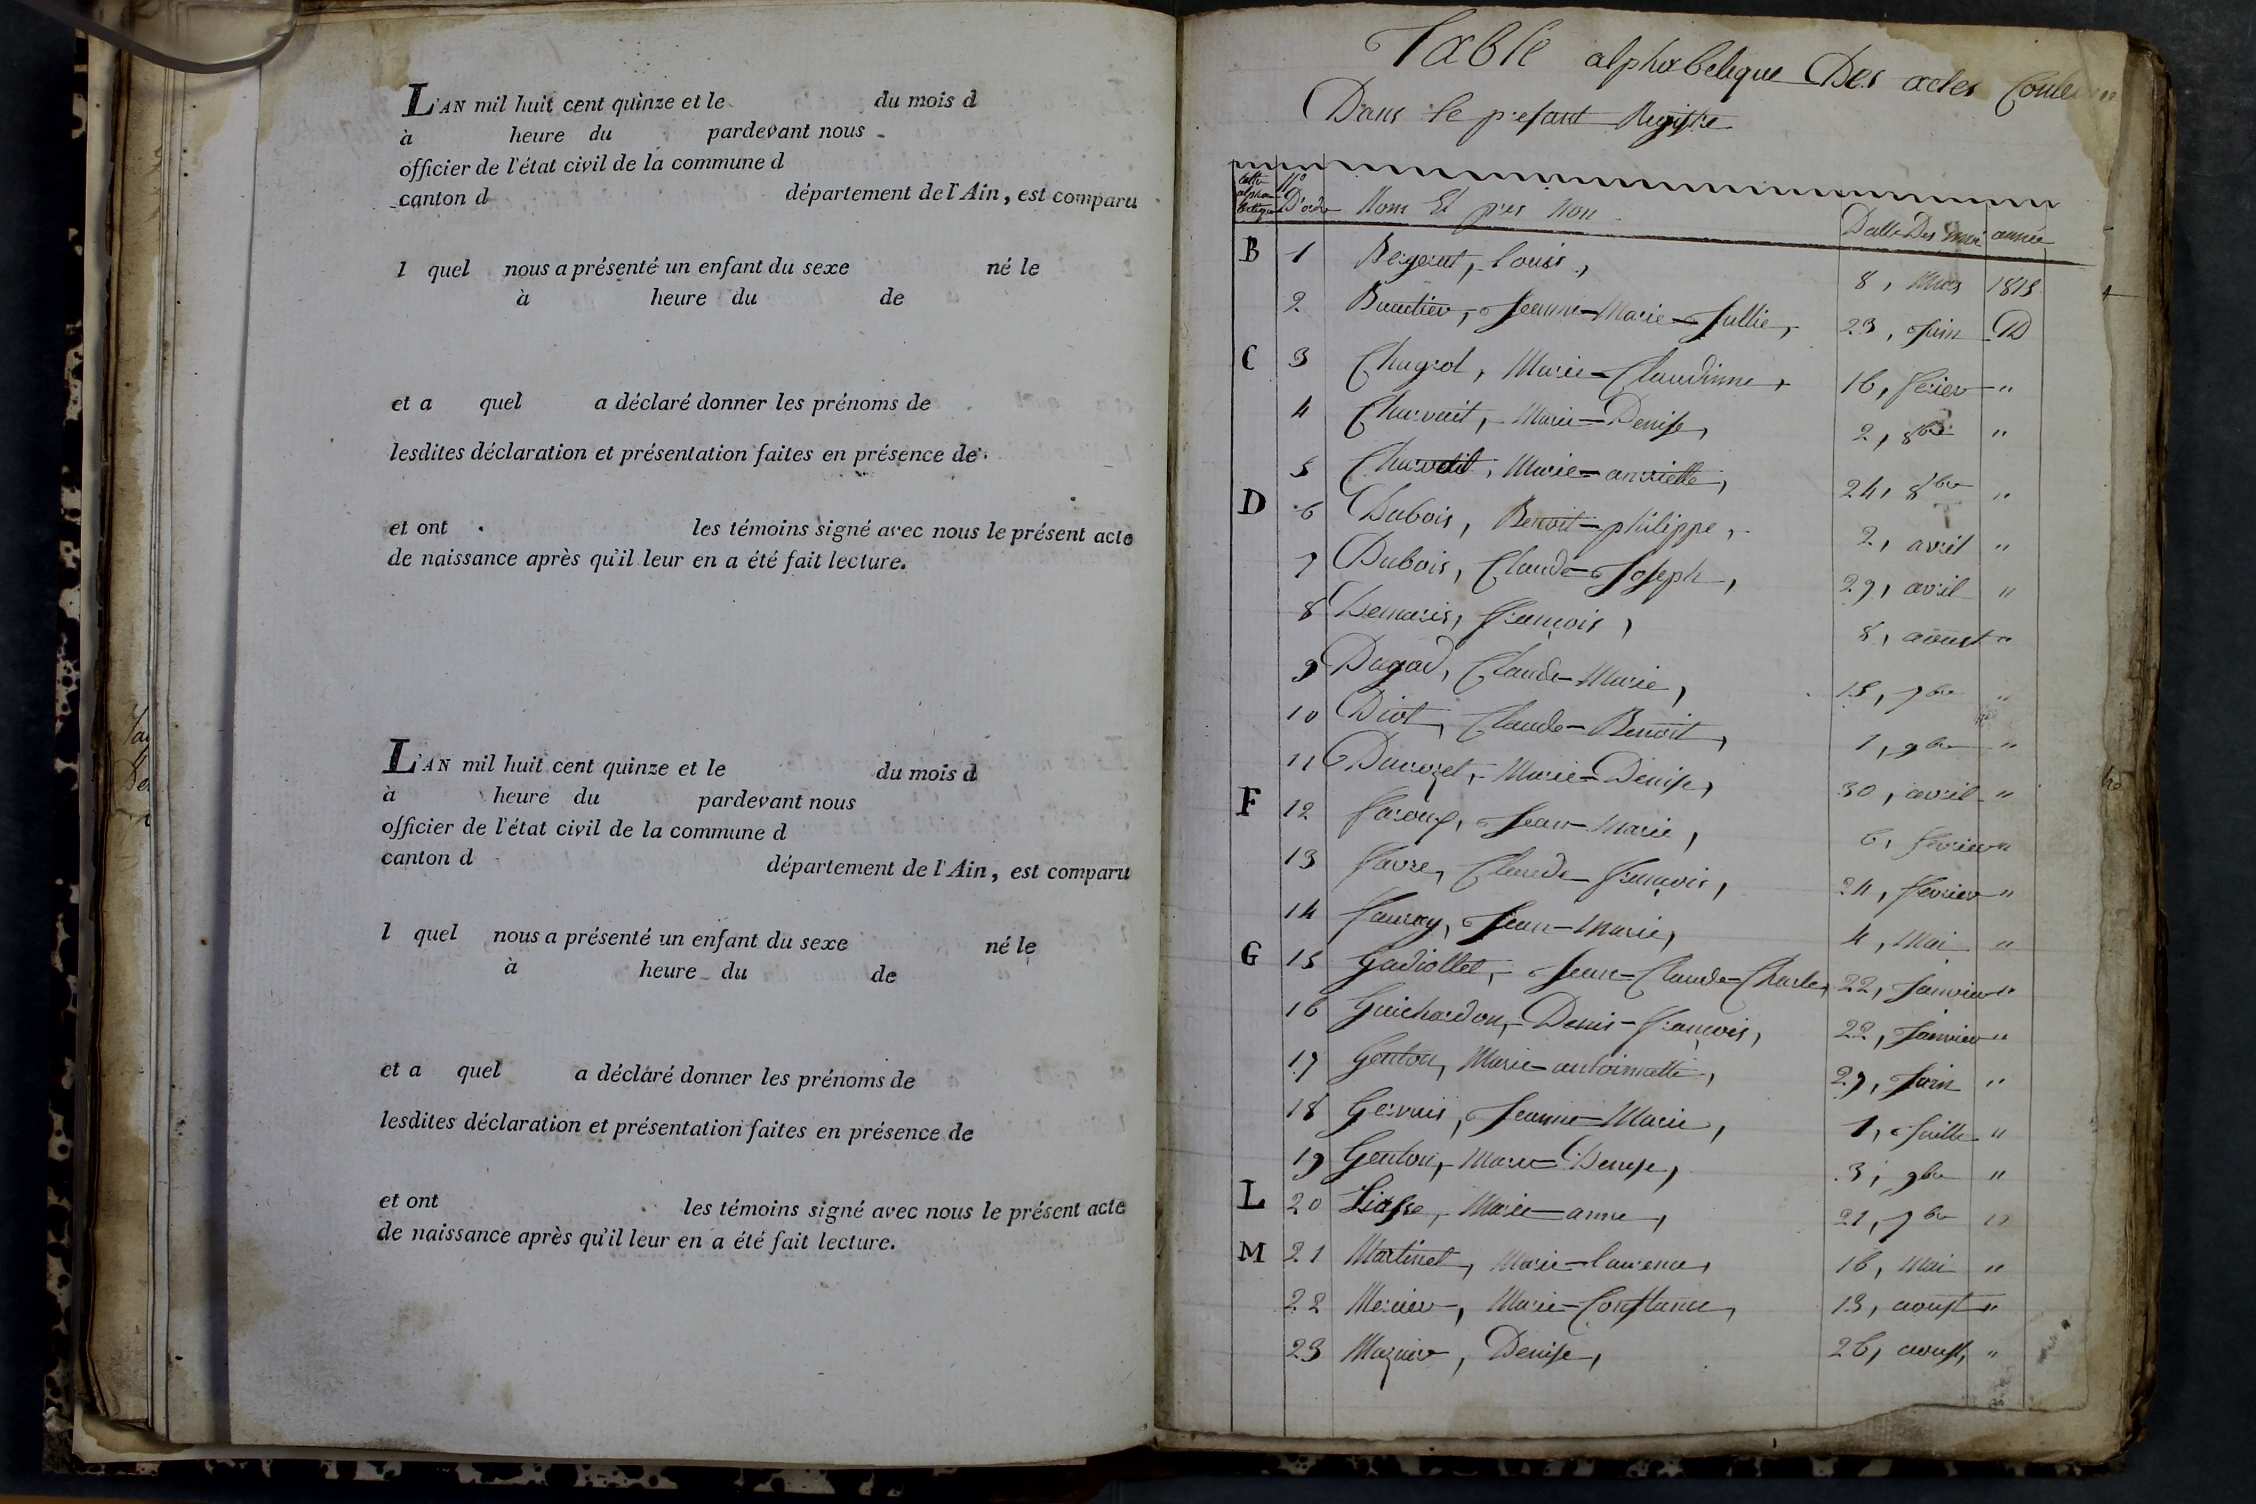 L'AN mil huit cent quinze et le du mois d
à heure du pardevant nous
officier de l'état civil de la commune d
canton d département de l'Ain, est comparu
l quel nous a présenté un enfant du sexe né le
à heure du de
et a quel a déclaré donner les prénoms de
lesdites déclaration et présentation faites en présence de
et ont les témoins signé avec nous le présent acte
de naissance après qu'il leur en a été fait lecture.
L'AN mil huit cent quinze et le du mois d
à heure du pardevant nous
officier de l'état civil de la commune d
canton d département de l'Ain, est comparu
l quel nous a présenté un enfant du sexe né le
à heure du de
et a quel a déclaré donner les prénoms de
lesdites déclaration et présentation faites en présence de
et ont les témoins signé avec nous le présent acte
de naissance après qu'il leur en a été fait lecture.
Table alphabetique Des actes
Dans le presant Registre
N° D'ordre Nom Et pres Non Datte Des année
B 1 Bergerut, louis, 8, Mars 1815
2 Jeanne-Marie-Jullie, 23, Juin D
C 3 Marie-Claudinne, 16, ferier "
4 Charvait, Marie-Denise, 2, 8bre "
5 Marie-anriette, 24, 8bre "
D 6 Dubois, Benoit-philippe, 2, avril "
7 Dubois, Claude-Joseph, 29, avril "
8 Demaris, françois, 8, aoust "
9 Dagad, Claude-Marie, 15, 7bre "
10 Diot, Claude-Benoit, 1, 9bre "
11 Durozet, Marie-Denise, 30, avril "
F 12 Jean-Marie, 6, fevrier "
13 favre, Claude-françois, 24, fevrier "
14 Jean-Marie, 4, Mai "
G 15 Gadiollet, Jean-Claude-Charle, 22, Janvier "
16 Guichardon, Denis-françois, 22, Janvier "
17 Genton, Marie-antoinnette, 27, Juin "
18 Gervais, Jeanne-Marie, 1, Juille "
19 Genton, Marie-Denise, 3, 9bre "
L 20 Liasse, Marie-anne, 21, 7bre "
M 21 Martinet, Marie-laurence, 16, Mai "
22 Mercier, Marie-Constance, 13, aoust "
23 Mazuier, Denise, 26, aoust, "